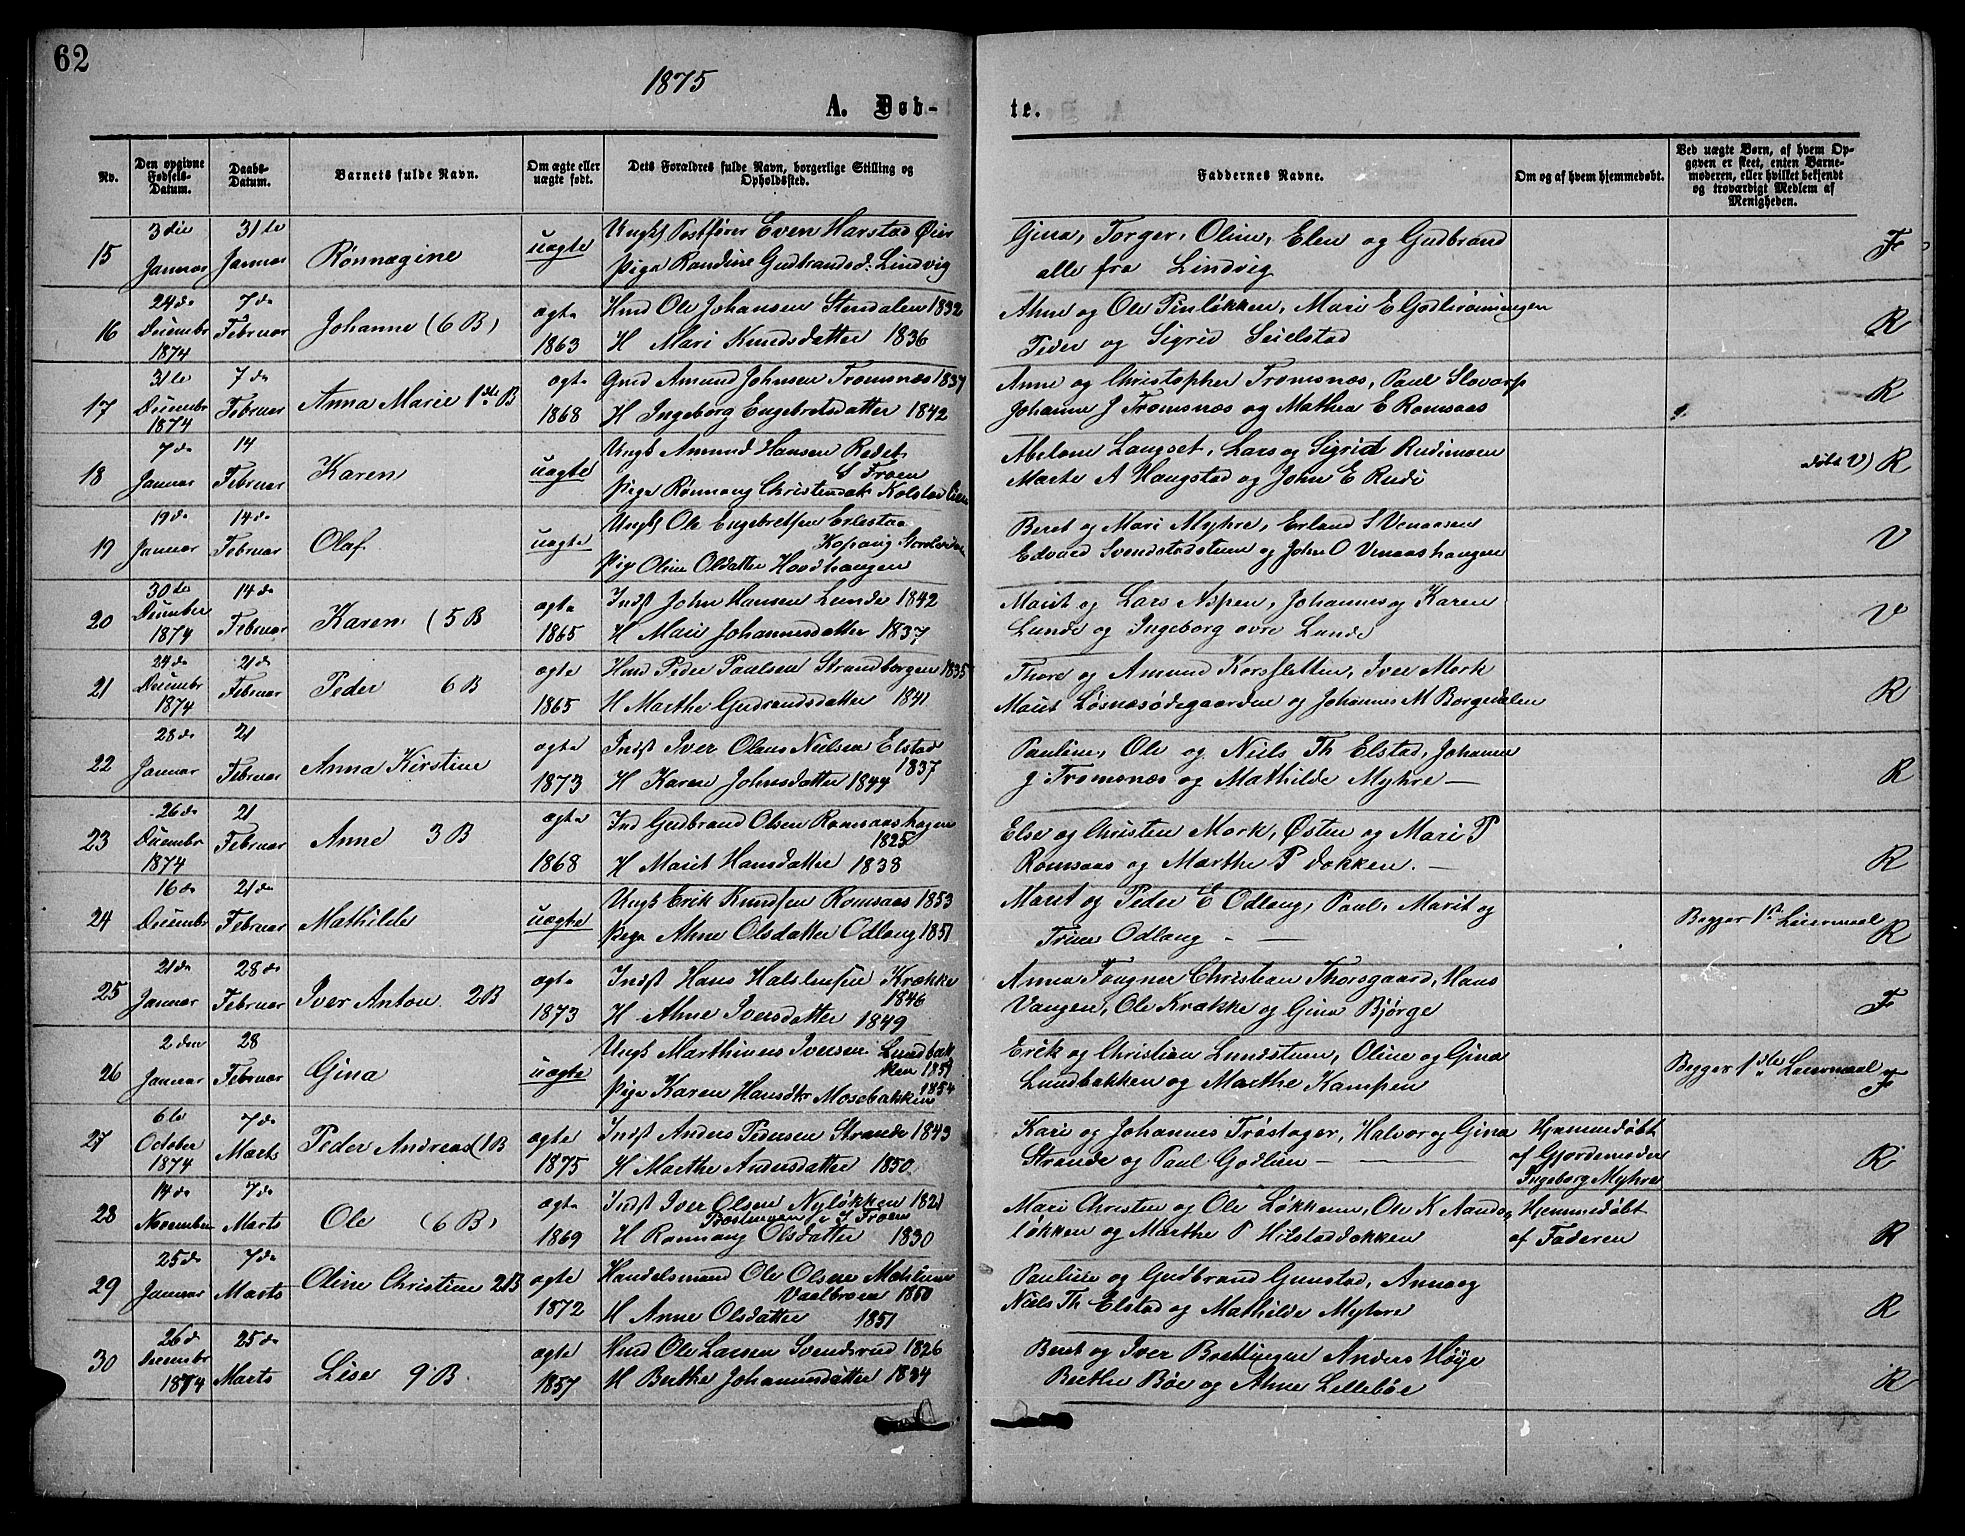 62
1875
A. Døb-
te.
No.
Den opgivne Fødsels-Datum.
Daabs-Datum.
Barnets fulde Navn.
Om ægte eller uægte født.
Dets Forældres fulde Navn, borgerlige Stilling og Opholdssted.
Faddernes Navne.
Om og af hvem hjemmedøbt.
Ved uægte Børn, af hvem Opgaven er skeet, enten Barnemoderen, eller hvilket bekjendt og troværdigt Medlem af Menigheden.
15 3die Januar 31te Januar Rønnægine uægte
Ungk Postfører Even Harstad Øier
Pige Randine Gudbrandsd: Lindvig
Gina, Torger, Oline, Elen og Gudbrand
alle fra Lindvig
F
16 24de Decembr 1874 7de Februar Johanne (6 B) ægte 1863
Hmd Ole Johansen Stendalen 1832
H Mari Knudsdatter 1836
Ahne og Ole Pinløkken, Mari E
Peder og Sigrid Seielstad
R
17 31te Decembr 1874 7de Februar Anna Marie 1ste B ægte 1868
Gmd Amund Johnsen Tromsnæs 1837
H Ingeborg Engebretsdatter 1842
Anne og Christopher Tromsnæs, Paul Slovarp
Johanne J Tromsnæs og Mathea E Romsaas
R
18 7de Januar 14 Februar Karen uægte
Ungk Amund Hansen Redet
S Froen
Pige Rønnaug Christensdatr Kolstad
Abelone Langset, Lars og Sigrid Rudimoen
Marte A Haugstad og John E Rudi
døbt V) R
19 19de Januar 14de Februar Olaf uægte
Ungk Ole Engebretsen Erlestaa
Kopang
Pige Oline Olsdatter Hovdhaugen
Beret og Mari Myhre, Erland S Venaasen
Edvard Svendstadstuen og John O Venaashaugen
V
20 30te Decembr 1874 14de Februar Karen (5 B ægte 1865
Indst John Hansen Lunde 1842
H Mari Johannesdatter 1837
Marit og Lars Aspen, Johannes og Karen
Lunde og Ingeborg øvre Lunde
V
21 24de Decembr 1874 21de Februar Peder 6 B ægte 1865
Hmd Peder Paulsen Strandborgen 1835
H Marthe Gudbrandsdatter 1841
Thore og Amund Korsfletten, Iver Mork
Marit Løsnæsødegaarden og Johannes M Borgedalen
R
22 28de Januar 21 Februar Anna Kirstine ægte 1873
Indst Iver Olaus Nielsen Elstad
1837
H Karen Johnsdatter 1844
Pauline, Ole og Niels Th Elstad, Johanne
J Tromsnæs og Mathilde Myhre —
R
23 26de Decembr 1874 21 Februar Anne 3 B ægte 1868
Ind Gudbrand Olsen Romsaashagen
1825
H Marit Hansdatter 1838
Else og Christen Mork, Østen og Mari P
Romsaas og Marthe P Dokken. —
R
24 16de Decembr 21de Februar Mathilde uægte
Ungk Erik Knudsen Romsaas 1853
Pige Ahne Olsdatter Odlaug 1851
Maret og Peder E Odlaug, Paul, Marit og
Trine Odlaug - —
Begges 1ste Leiermaal
R
25 21de Januar 28de Februar Iver Anton 2B ægte 1873
Indst Hans Halstensen Krække
1846
H Ahne Iversdatter 1849
Anna Fougner Christian Thorsgaard, Hans
Vangen, Ole Krække og Gina Bjørge
F
26 2den Januar 28 Februar Gina uægte
Ungk Marthinus Iversen Lundbæk
ken 1851
Pige Karen Hansdtr Mosebakken 1854
Erik og Christian Lundstuen, Oline og Gina
Lundbakken og Marthe Kampen
Begges 1ste Leiermaal F
27 6te October 1874 7de Marts Peder Andreas (1B ægte 1875
Indst Anders Pedersen Strande 1843
H Marthe Andersdatter 1850
Kari og Johannes Trøstager, Halvor og Gina
Strande og Paul Godlien
Hjemmedøbt af Gjordemoder Ingeborg Myhre
R
28 14de November 7de Marts Ole (6 B) ægte 1869
Indst Iver Olsen Nyløkken 1821
i S Froen
H Rønnaug Olsdatter 1830
Mari Christen og Ole Løkken, Ole K Aands
løkken og Marthe P Hilstaddokken
Hjemmedøbt af Faderen
R
29 25de Januar 7de Marts Oline Christine 2B ægte 1872
Handelsmand Ole Olsen
Vaalbroen 1850
H Anne Olsdatter 1851
Pauline og Gudbrand Gunstad, Anna og
Niels Th Elstad og Mathilde Myhre
R
30 26de Decembr 1874 25de Marts Lise 9 B. ægte 1857
Hmd Ole Larsen Svendsrud 1826
H Berthe Johannesdatter 1834
Beret og Iver Brettingen Anders Høye
Berthe Bøe og Ahne Lillebøe
R